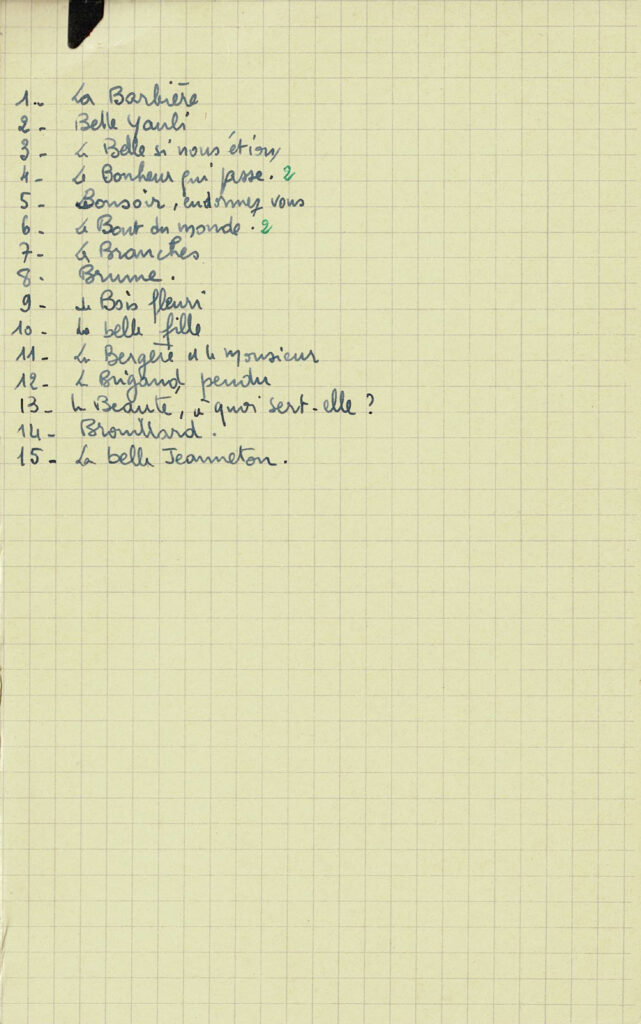 1 - La Barbière
2 - Belle Yauli
3 - La Belle si nous étions
4 - Le Bonheur qui passe. 2
5 - Bonsoir, endormez vous
6 - Le Bout du monde. 2
7 - Les Branches
8. Brume.
9 - Le Bois fleuri
10 - La belle fille
11 - La Bergère et le monsieur
12 - Le Brigand pendu
13 - La Beauté, à quoi sert-elle ?
14 - Brouillard.
15 - La belle Jeanneton.